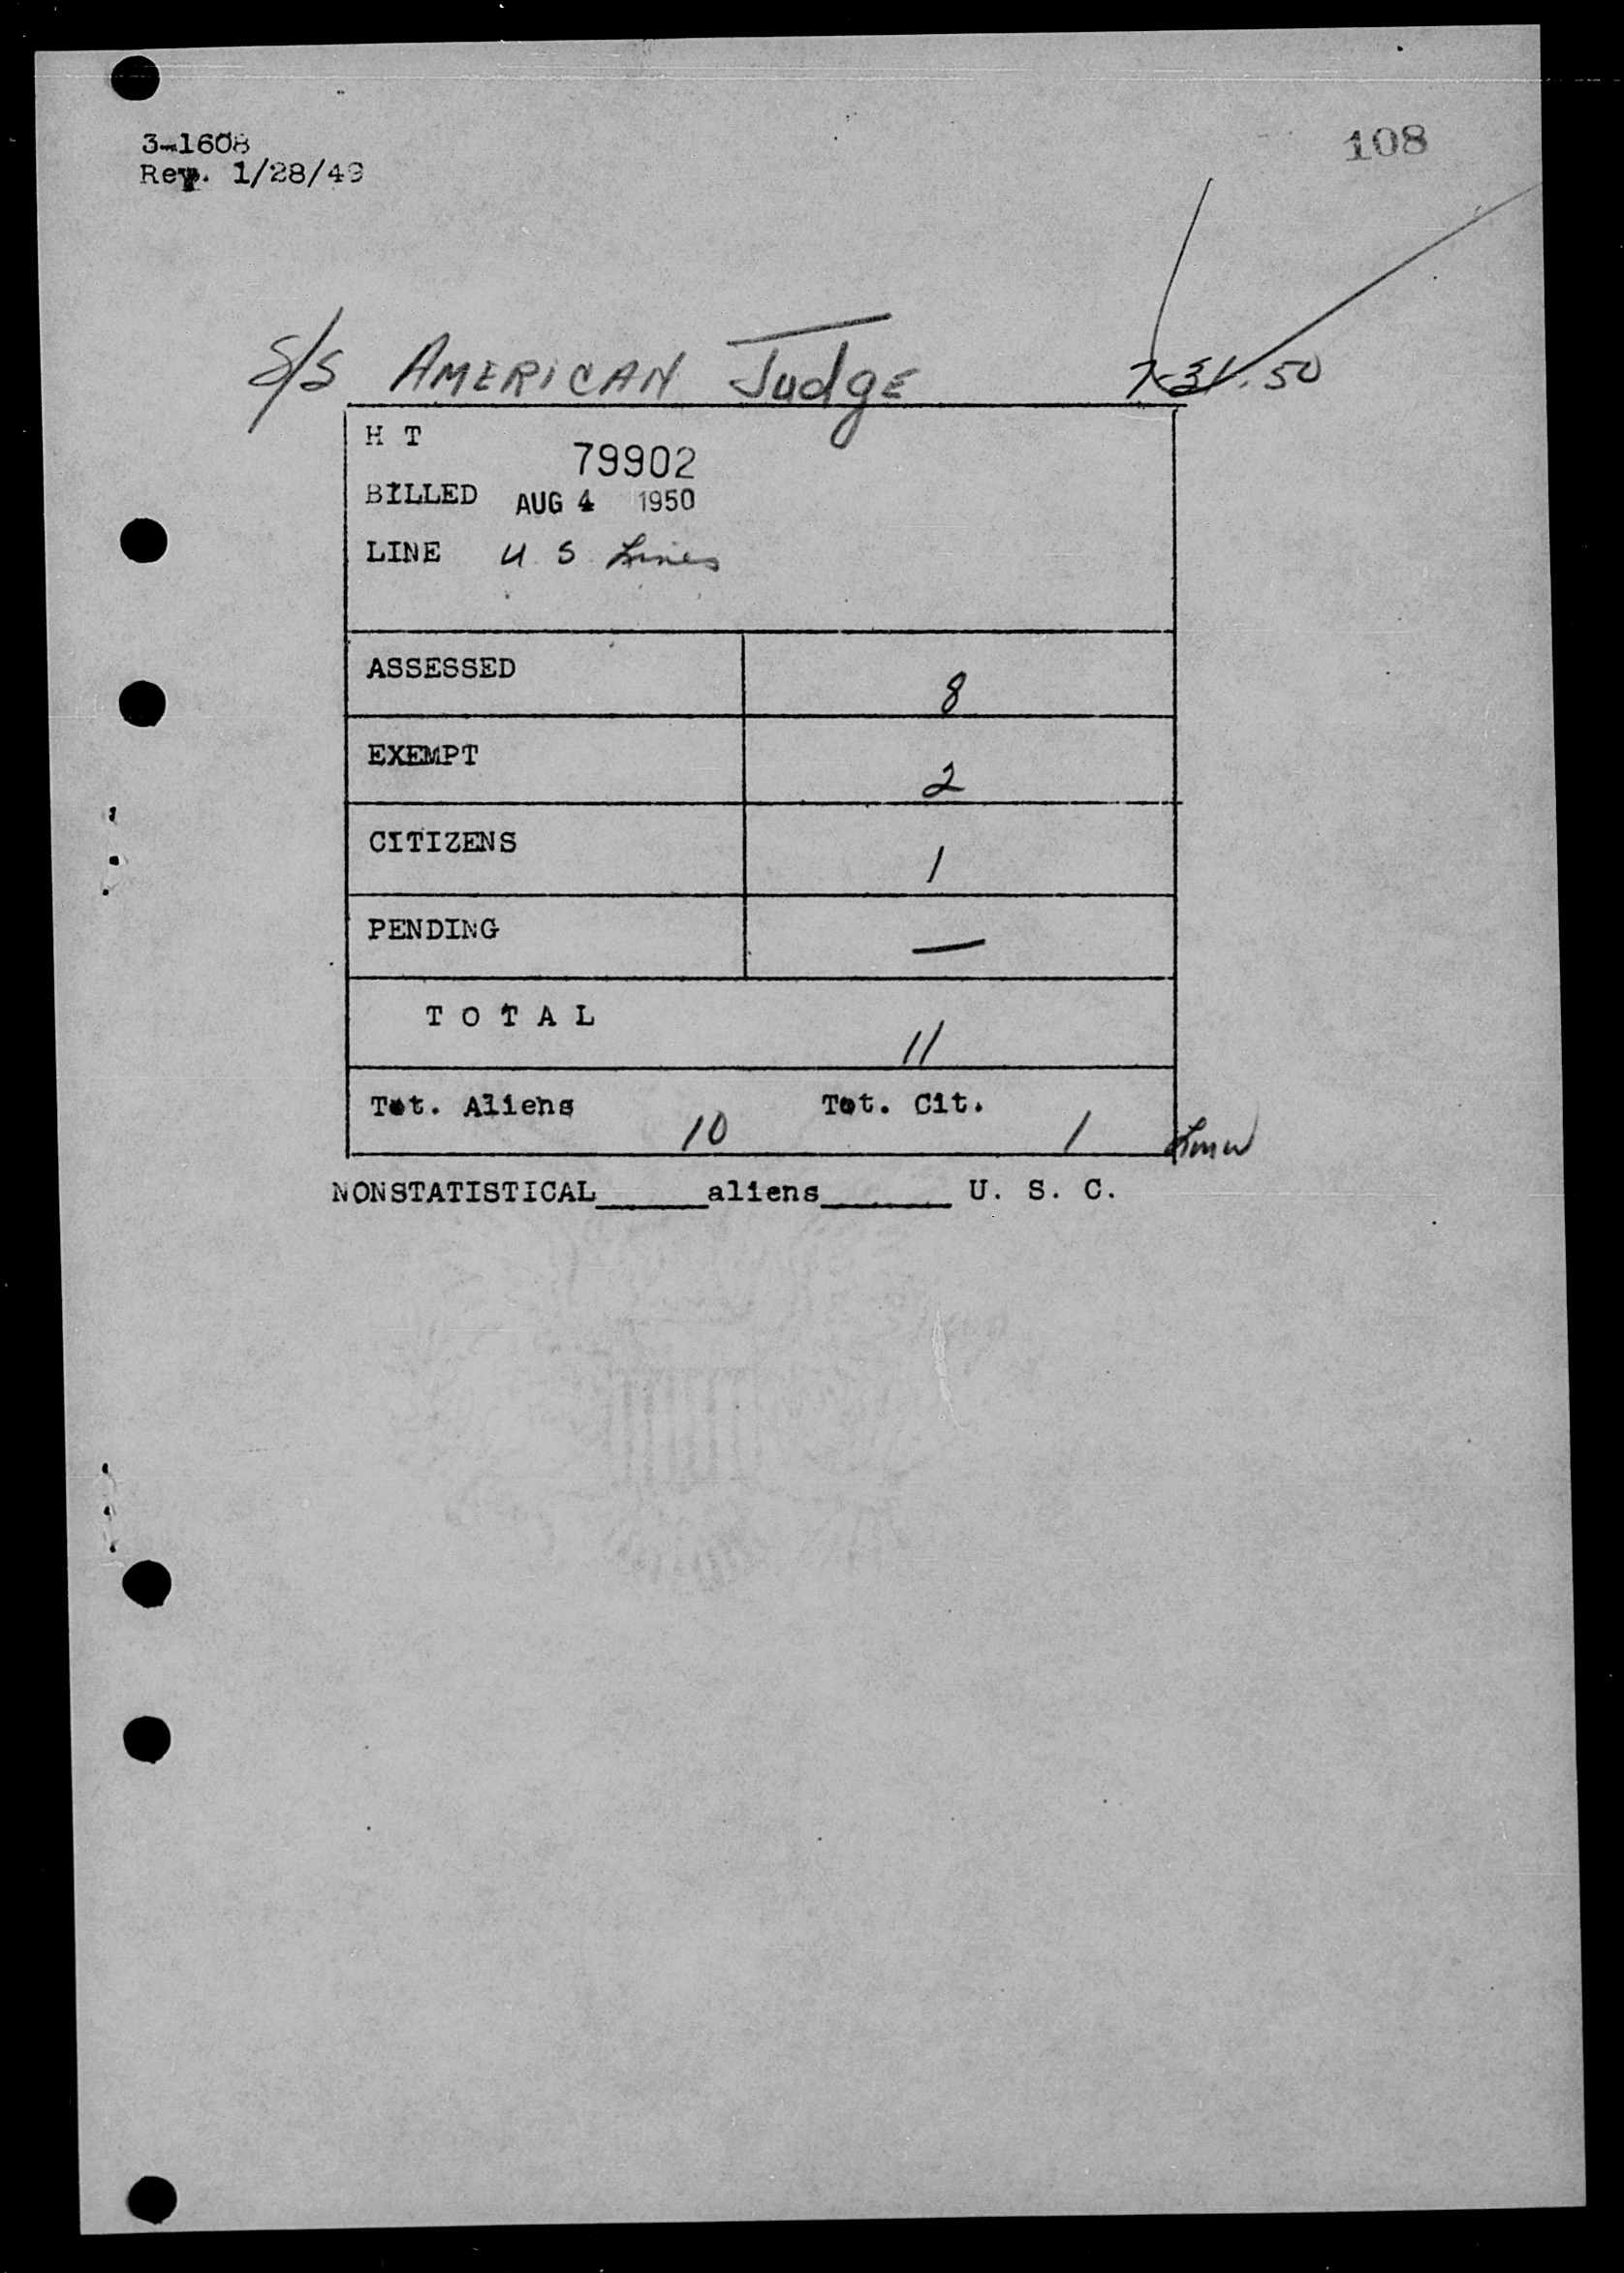 3-1608
108
Rev. 1/28/49
S/S AMERICAN Judge 7-31-50
H T
79902
BILLED AUG 4 1950
LINE U.S. Lines
ASSESSED 8
EXEMPT 2
CITIZENS 1
PENDING —
TOTAL 11
Tot. Aliens 10 Tot. Cit. 1
NONSTATISTICAL______aliens_______ U. S. C.